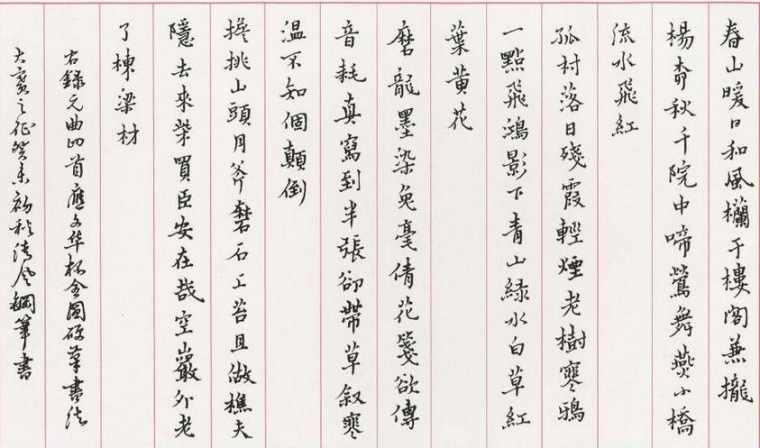 春山暖日和風欄干樓閣攏
楊柳秋千院中啼鶯舞燕小橋
流水飛紅
孤村落日殘霞輕煙老樹寒鴉
一點飛鴻影下青山綠水白草紅
葉黃花
磨龍墨染兔毫倩花箋欲傳
音耗真寫到半張卻帶草叙寒
溫不知個顛倒
擔挑山頭月斧磨石上苔且做樵夫
隱去來柴買臣安在哉空巖外老
了棟梁材
右錄元曲四首應文华杯全國硬筆書法
大賽之征癸未初秋鋼筆書